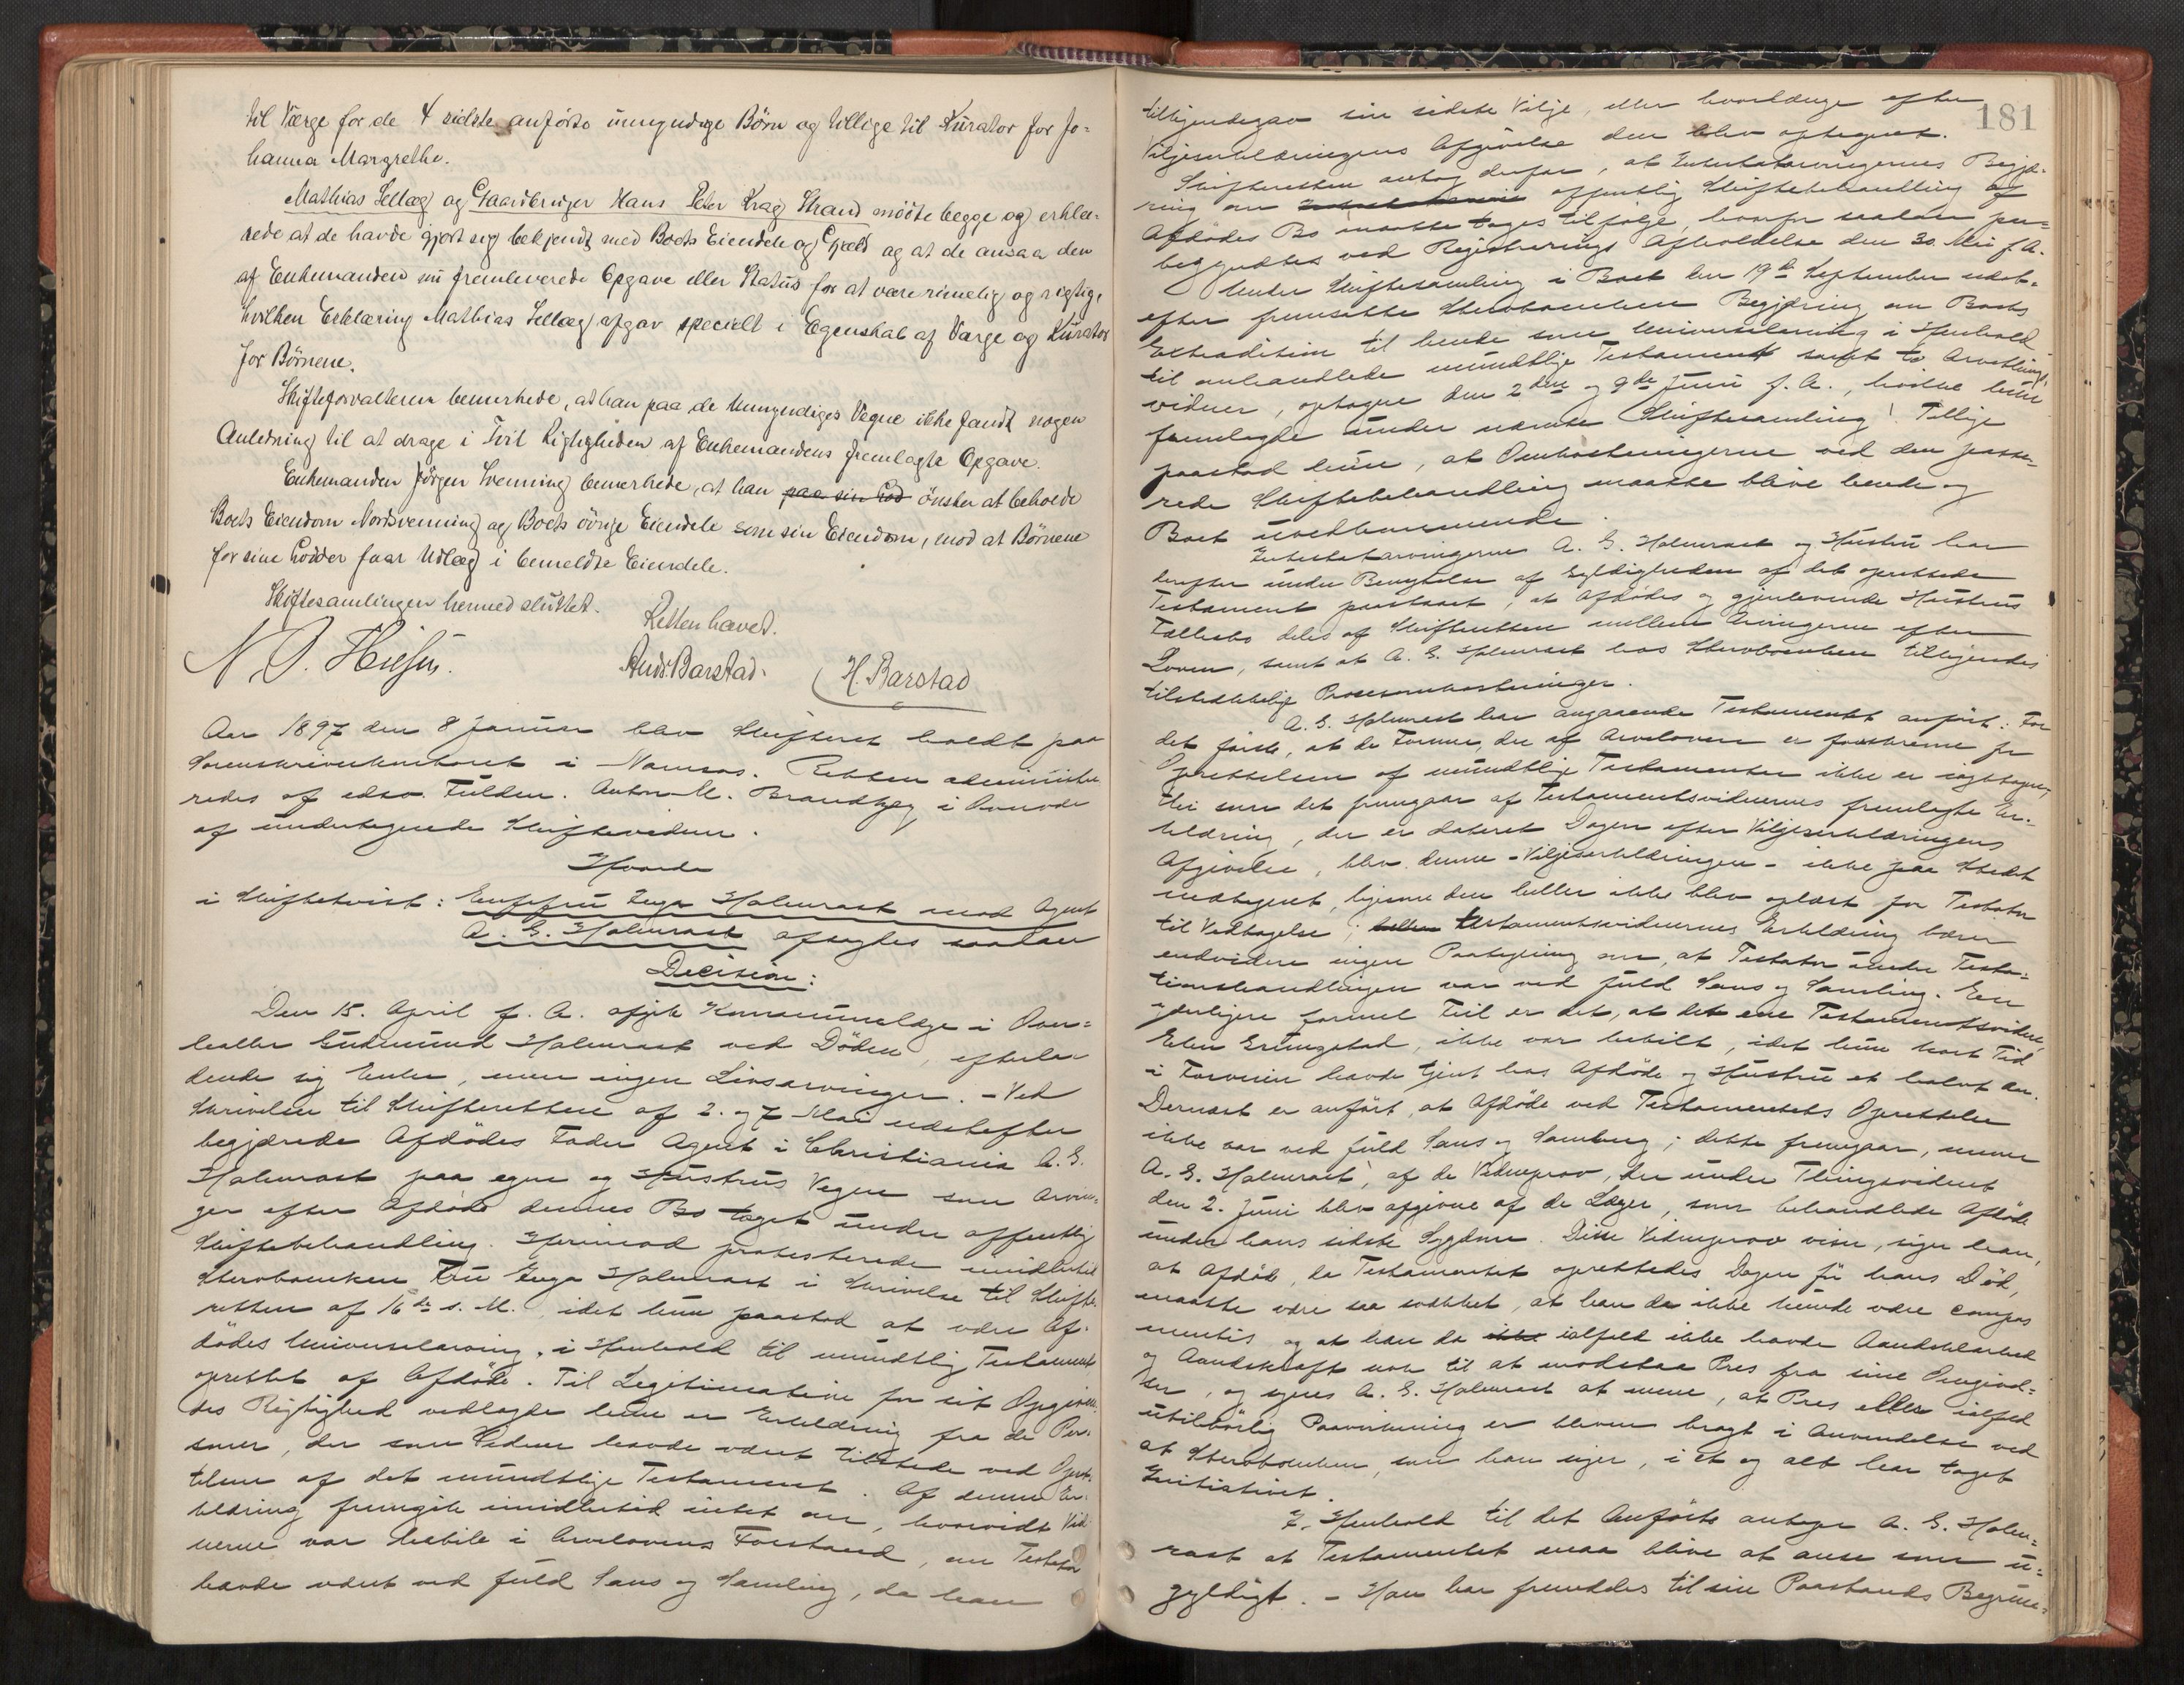 til Værge for de 4 sidste anførte umyndige Børn og tillige til Kurator for Jo-
hanna Margrethe.
Mathias Sellæg og Gaardbruger Hans Peter Krag Strand mødte begge og erklæ-
rede at de havde gjort sig bekjendt med Boets Eiendele og Gjæld og at de ansaa den
af Enkemanden nu fremleverede Opgave eller Status for at være rimelig og rigtig,
hvilken Erklæring Mathias Sellæg afgav specielt i Egenskab af Værge og Kurator
for Børnene.
Skifteforvalteren bemerkede, at han paa de Umyndiges Vegne ikke fandt nogen
Anledning til at drage i Tvil Rigtigheden af Enkemandens fremlagte Opgave.
Enkemanden Jørgen Svenning bemerkede, at han paa sin Lod ønsker at beholde
Boets Eiendom Nordsvenning og Boets øvrige Eiendele som sin Eiendom, mod at Børnene
for sine Lodder faar Udlæg i bemeldte Eiendele.
Skiftesamlingen hermed sluttet.
Retten hævet.
Ands. Barstad. H. Barstad
Aar 1897 den 8 Januar blev Skifteret holdt paa
Sorenskriverkontoret i Namsos. Retten administre-
redes af edsv. Fuldm. Anton M. Brandtzæg i Overvær
af undertegnede Skiftevidner.
Hvorda
i Skiftetvist: Enkefru Inga Holmrast mod Agent
A. G. Holmrast afsagdes saadan
Decision:
Den 15. April f. A. afgik Kommunelæge i Over-
halla Gudmund Holmrast ved Døden, efterla-
dende sig Enke, men ingen Livsarvinger. - Ved
Skrivelse til Skifteretten af 2. og 7 Mai udstefter
begjærede Afdødes Fader Agent i Christiania A. G.
Holmrast paa egne og Hustrus Vegne som Arvin-
ger efter Afdøde dennes Bo taget under offentlig
Skiftebehandling. Herimod protesterede imidlertid
Sterboenken Fru Inga Holmrast i Skrivelse til Skifte-
retten af 16de s. M. idet hun paastod at være Af-
dødes Universalarving, i Henhold til mundtlig Testament
oprettet af Afdøde. Til Legitimation for sit Opgiven-
des Rigtighed vedlagde hun en Erklæring fra de Per-
soner, der som Vidner havde været tilstede ved Opret-
telsen af det mundtlige Testament. Af denne Er-
klæring fremgik imidlertid intet om, hvorvidt Vid-
nerne var habile i Arvelovens Forstand, om Testator
havde været ved fuld Sans og Samling, da han
181
tilkjendegav sin sidste Vilje, eller hvorlænge efter
Viljeserklæringens Afgivelse den blev optegnet.
Skifteretten antog derfor, at Intestatarvingernes Begjæ-
ring om offentlig Skiftebehandling af
Afdødes Bo maatte tages tilfølge, hvorfor saadan paa-
begyndtes ved Registrerings Afholdelse den 30. Mai f. A.
Under Skiftesamling i Boet den 19de September udst-
efter fremsatte Sterboenken Begjæring om Boets
Extradition til hende som Universalarving i Henhold
til omhandlede mundtlige Testament samt to Arvetings-
vidner, optagne den 2den og 9de Juni f. A., hvilke hun
fremlagde under nævnte Skiftesamling. Tillige
paastod hun, at Omkostningerne ved den passe-
rede Skiftebehandling maatte blive hende og
Boet uvedkommende.
Intestatarvingerne A. G. Holmrast og Hustru har
derefter under Benegtelse af Gyldigheden af det oprettede
Testament paastaaet, at Afdødes og gjenlevende Hustrus
Fællesbo deles af Skifteretten mellem Arvingerne efter
Loven, samt at A. G. Holmrast hos Sterboenken tilkjendes
tilstrækkelige Procesomkostninger.
A. G. Holmrast har angaaende Testamentet anført: For
det første, at de Former, der af Arveloven er foreskrevne for
Oprettelsen af mundtlige Testamenter ikke er iagttagne,
thi som det fremgaar af Testamentsvidnernes fremlagte Er-
klæring, der er dateret Dagen efter Viljeserklæringens
Afgivelse, blev denne - Viljeserklæringen - ikke paa Stedet
nedtegnet, ligesom den heller ikke blev oplæst for Testator
til Vedtagelse; heller Testamentsvidnernes Erklæring bærer
endvidere ingen Paategning om, at Testator under Testa-
tionshandlingen var ved fuld Sans og Samling. En
yderligere formel Feil er det, at det ene Testamentsvidne,
Elen Grungstad, ikke var habilt, idet hun kort Tid
i Forveien havde tjent hos Afdøde og Hustru et halvt Aar.
Dernæst er anført, at Afdøde ved Testamentets Oprettelse
ikke var ved fuld Sans og Samling; dette fremgaar, mener
A. G. Holmrast, af de Vidneprov, der under Thingsvidnet
den 2. Juni blev afgivne af de Læger, som behandlede Afdøde
under hans sidste Sygdom. Disse Vidneprov viser, siger han,
at Afdøde, da Testamentet oprettedes Dagen før hans Død,
maatte være saa svækket, at han da ikke kunde være compos
mentis, og at han da ikke ialfald ikke havde Aandsklarhed
og Aandskraft nok til at modstaa Pres fra sine Omgivel-
ser, og synes A. G. Holmrast at mene, at Pres eller ialfald
utilbørlig Paavirkning er bleven bragt i Anvendelse ved
at Sterboenken, som han siger, i et og alt har taget
Initiativet.
I Henhold til det Anførte antager A. G. Holm-
rast at Testamentet maa blive at anse som u-
gyldigt. - Han har fremdeles til sin Paastands Begrun-